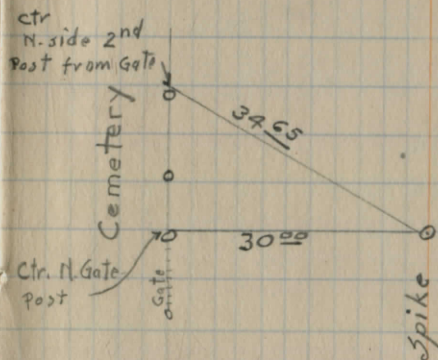 ctr
N. side 2nd
Post from Gate
Cemetery
34 65
30 00
Ctr. N. Gate
Post
Gate
Spike